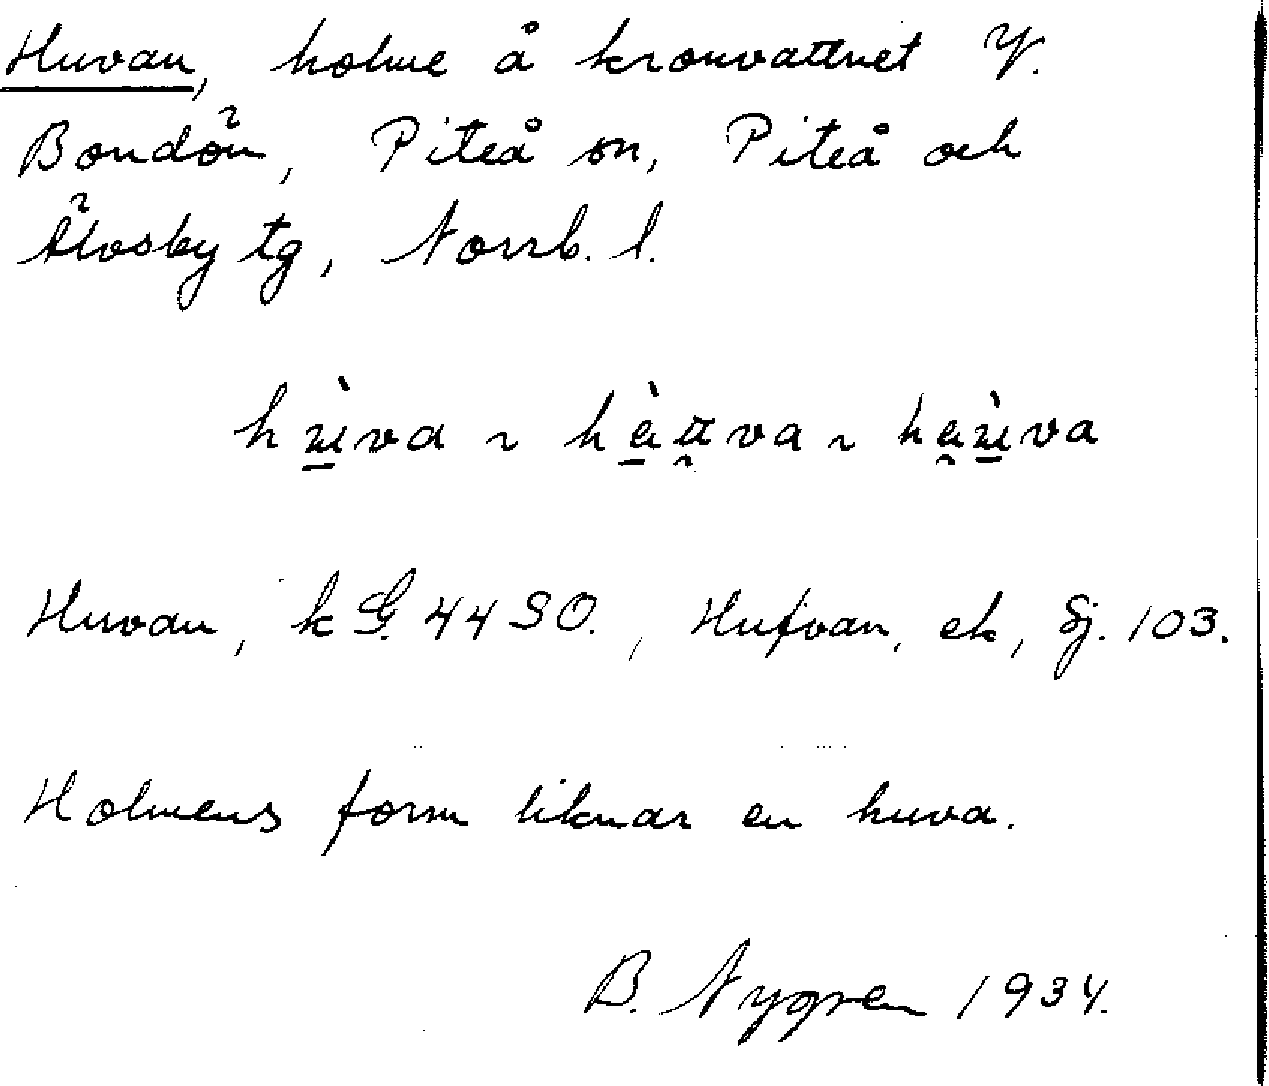 Huvan, holme å kronvattnet Y.
Bondön, Piteå sn, Piteå och
Älvsby tg, Norrb. l.
Huvan, k G. 44 SO., Hufvan, ek, Sj. 103.
Holmens form liknar en huva.
B. Nygren 1934.